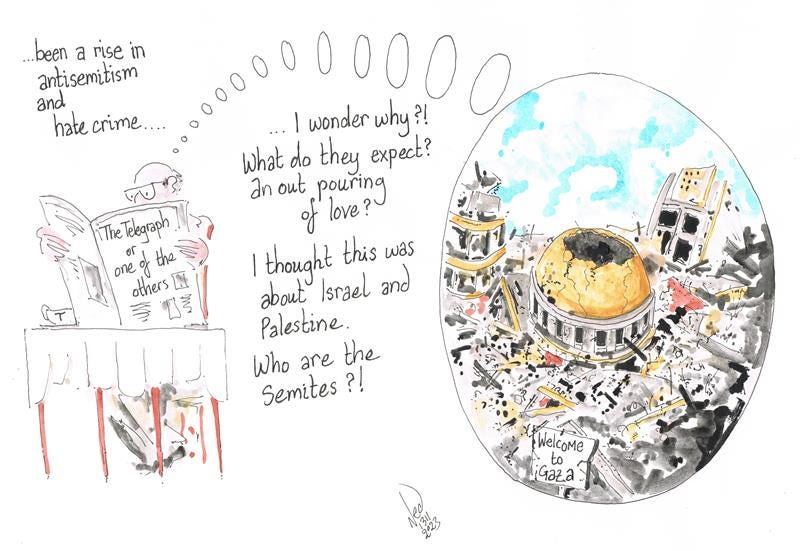 ...been a rise in
antisemitism
and
hate crime....
The Telegraph
or
one of the
others
T
... I wonder why?!
What do they expect?
an out pouring
of love?
I thought this was
about Israel and
Palestine.
Who are the
Semites?!
Welcome
to
Gaza
2023